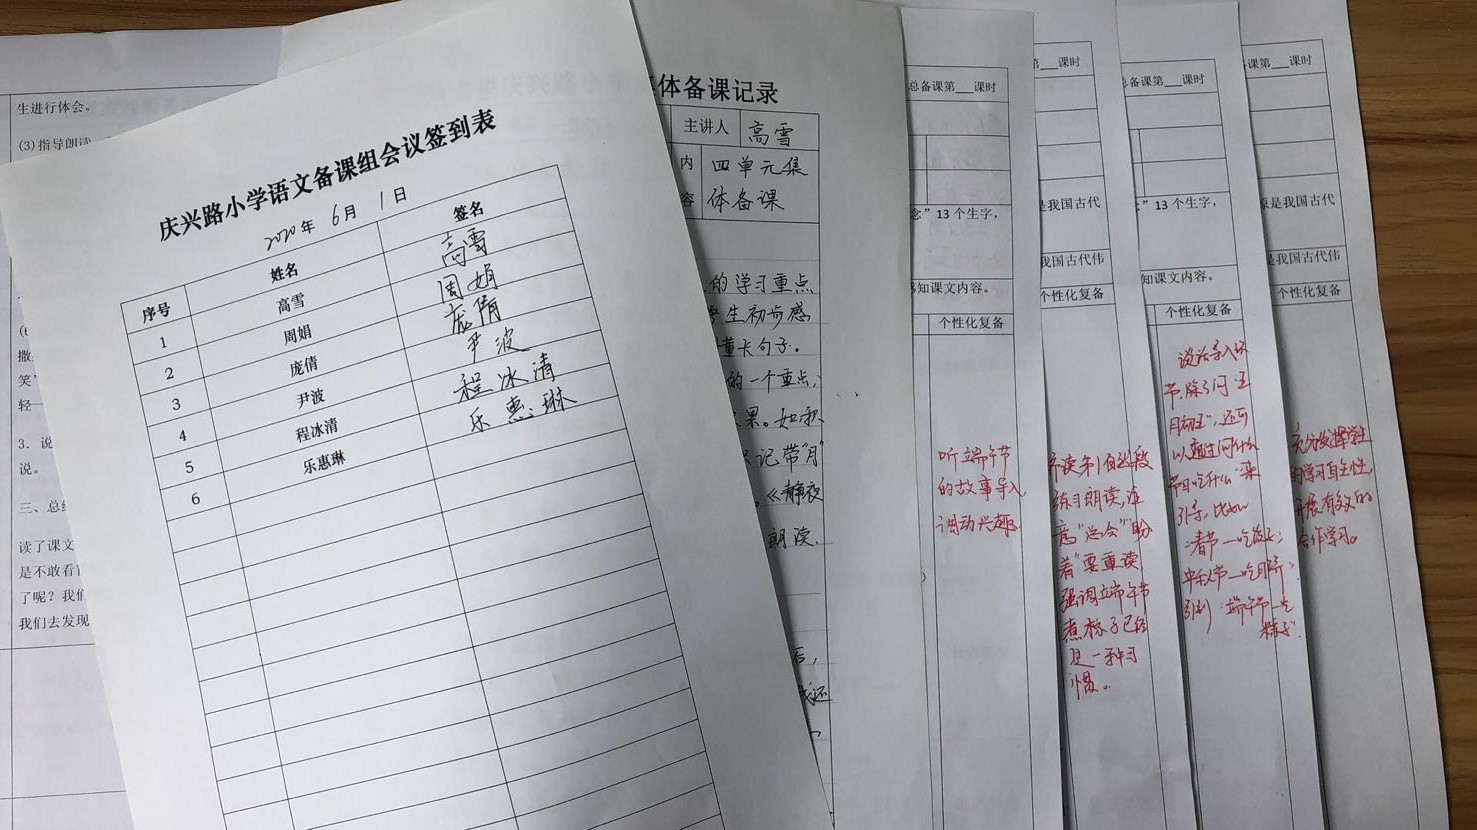 生进行体会。
(3)指导朗读
撒
笑”
轻一
3. 说
说。
三、总结
读了课文
是不敢看
了呢？我们
我们去发现
庆兴路小学语文备课组会议签到表
2020年 6月 1日
序号 姓名 签名
1 高雪 高雪
2 周娟 周娟
3 庞倩 庞倩
4 尹波 尹波
5 程冰清 程冰清
6 乐惠琳 乐惠琳
体备课记录
主讲人 高雪
内容 四单元集体备课
的学习重点
学生初步感
懂长句子。
的一个重点,
果。如积
识记带“月
。《静夜
朗读.
后,
还
总备课第___课时
念”13个生字，
知课文内容。
个性化复备
听端午节
的故事导入,
调动兴趣.
第___课时
是我国古代
我国古代伟
个性化复备
齐读第1自然段
练习朗读,注
意“总会”“盼
着”要重读
强调端午节
煮粽子已经
是一种习
惯。
总备课第___课时
”13个生字，
知课文内容。
个性化复备
谈话导入环
节,除了问“五
月初五”,还可
以通过问什么
节日吃什么来
引导,比如
:春节—吃饺子;
中秋节—吃月饼;
引到:端午节—吃
粽子.
课第___课时
原是我国古代
是我国古代伟
个性化复备
充分发挥学生
的学习自主性,
开展有效的
合作学习。